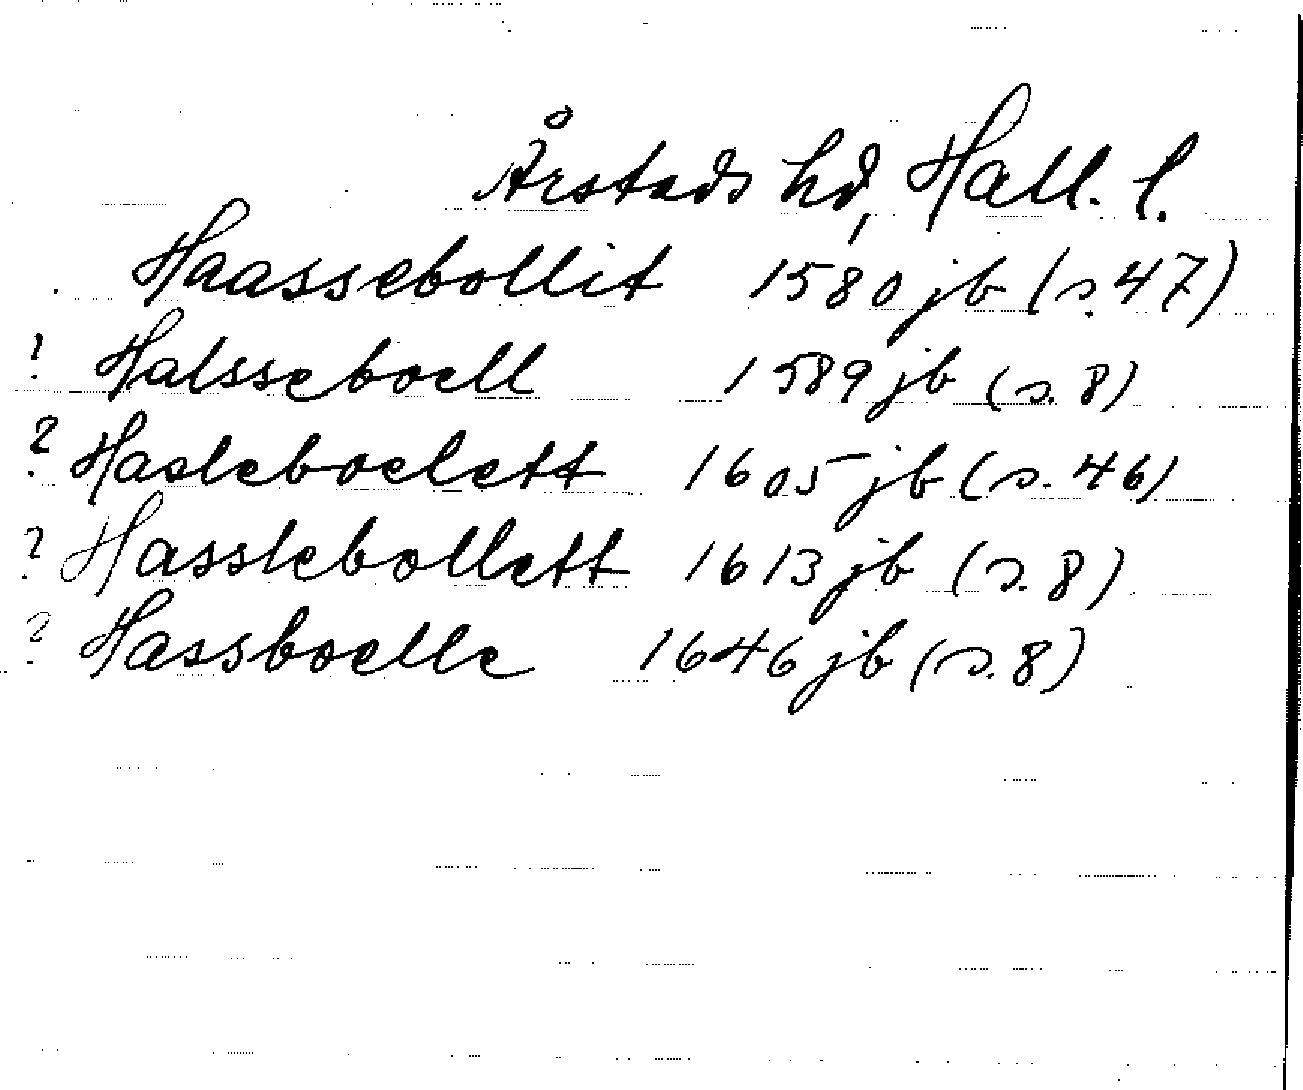 Årstads hd, Hall. l.
Haassebollit 1580 jb (s. 47)
? Halsseboell 1589 jb (s. 8)
? Hasleboelett 1605 jb (s. 46)
? Hasslebollett 1613 jb (s. 8)
? Hassboelle 1646 jb (s. 8)